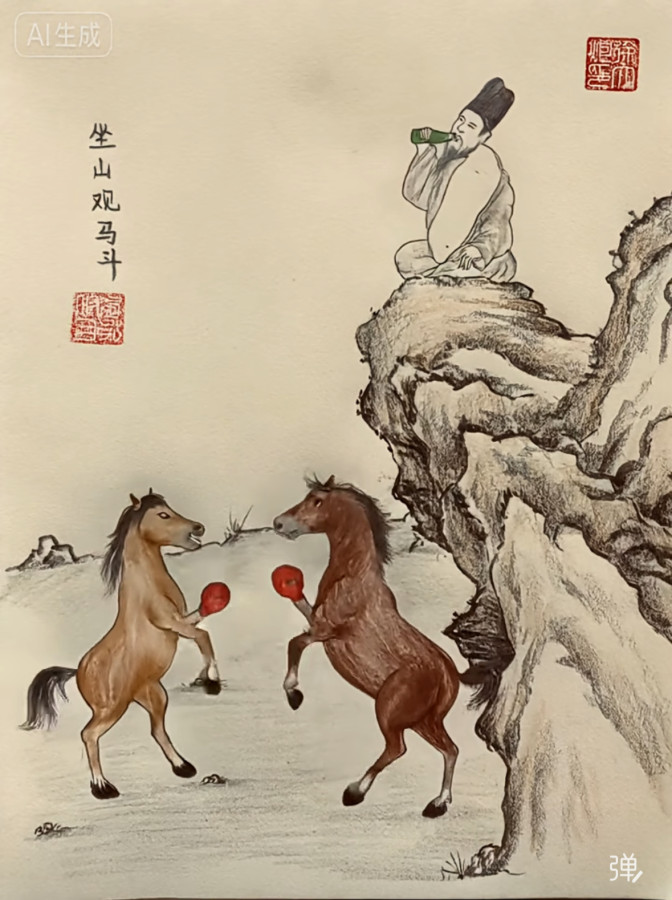 AI生成
坐山观马斗
弹